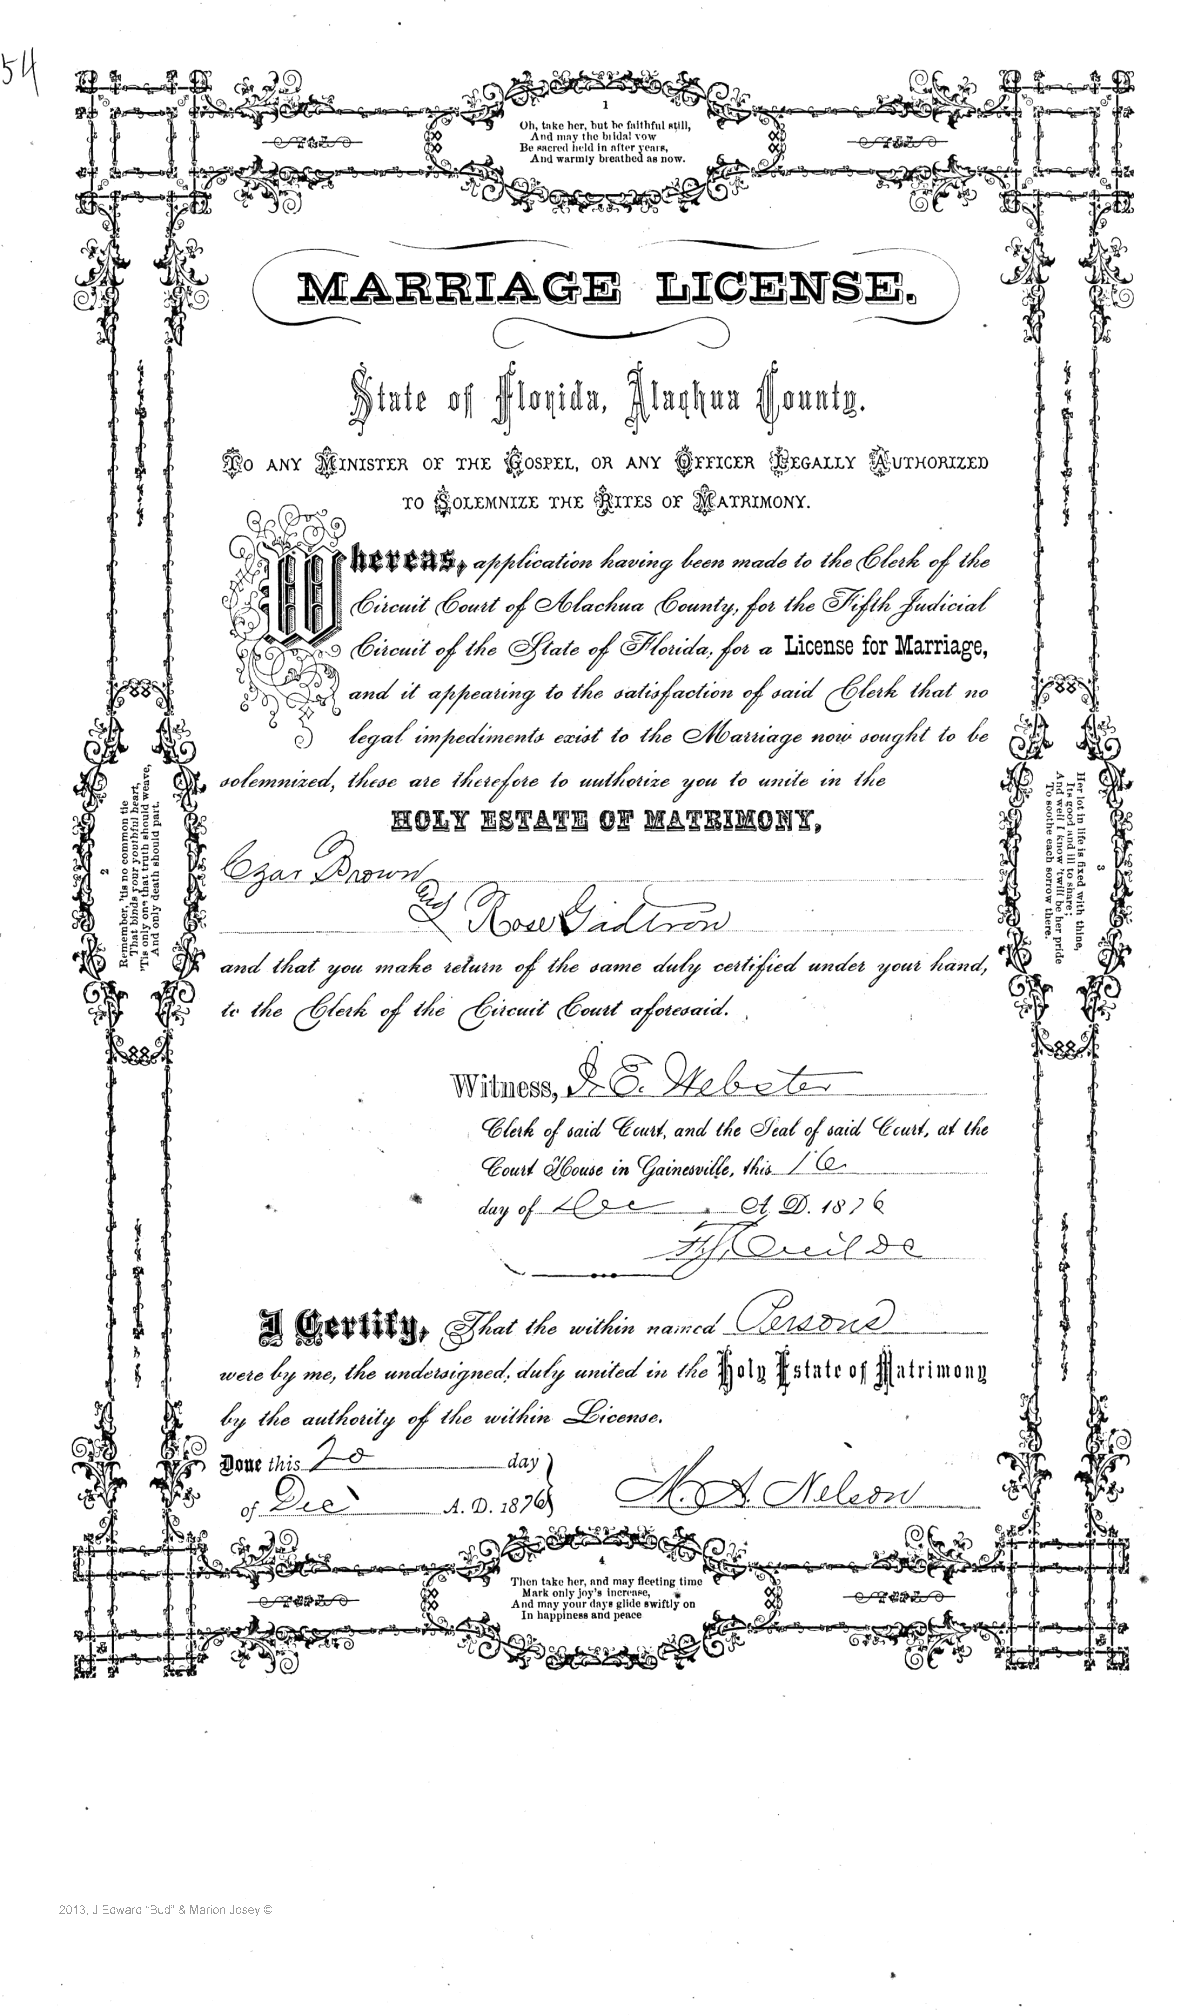 54
1
Oh, take her, but be faithful still,
And may the bridal vow
Be sacred held in after years,
And warmly breathed as now.
MARRIAGE LICENSE.
State of Florida, Alachua County.
TO ANY MINISTER OF THE GOSPEL, OR ANY OFFICER LEGALLY AUTHORIZED
TO SOLEMNIZE THE RITES OF MATRIMONY.
Whereas, application having been made to the Clerk of the
Circuit Court of Alachua County, for the Fifth Judicial
Circuit of the State of Florida, for a License for Marriage,
and it appearing to the satisfaction of said Clerk that no
legal impediments exist to the Marriage now sought to be
solemnized, these are therefore to authorize you to unite in the
HOLY ESTATE OF MATRIMONY,
Czar Brown
and Rose Gadtron
and that you make return of the same duly certified under your hand,
to the Clerk of the Circuit Court aforesaid.
Witness, J. E. Webster
Clerk of said Court, and the Seal of said Court, at the
Court House in Gainesville, this 16
day of Dec A. D. 1876
Cecil DC
I Certify, That the within named Persons
were by me, the undersigned, duly united in the Holy Estate of Matrimony
by the authority of the within License.
Done this 20 day
of Dec A. D. 1876
M. A. Nelson
2
Remember, 'tis no common tie
That binds your youthful heart,
'Tis only one that truth should weave,
And only death should part.
3
Her lot in life is fixed with thine,
Its good and ill to share;
And well I know 'twill be her pride
To soothe each sorrow there.
4
Then take her, and may fleeting time
Mark only joy's increase,
And may your days glide swiftly on
In happiness and peace
2013, J Edward "Bud" & Marion Josey ©